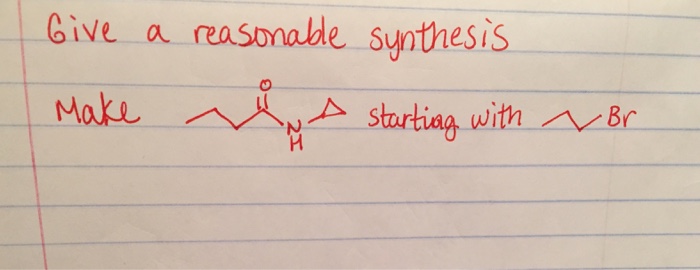 Give a reasonable synthesis
Make O N H starting with Br